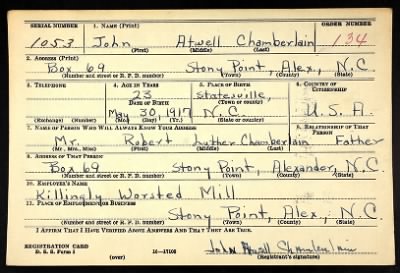 SERIAL NUMBER 1. NAME (Print) ORDER NUMBER
1053 John Atwell Chamberlain 134
(First) (Middle) (Last)
2. ADDRESS (Print)
Box 69 Stony Point, Alex., N.C.
(Number and street or R. F. D. number) (Town) (County) (State)
3. TELEPHONE 4. AGE IN YEARS 5. PLACE OF BIRTH 6. COUNTRY OF CITIZENSHIP
23 Statesville,
DATE OF BIRTH (Town or county)
May 30 1917 N.C. U.S.A.
(Exchange) (Number) (Mo.) (Day) (Yr.) (State or country)
7. NAME OF PERSON WHO WILL ALWAYS KNOW YOUR ADDRESS 8. RELATIONSHIP OF THAT PERSON
Mr. Robert Luther Chamberlain Father
(Mr., Mrs., Miss) (First) (Middle) (Last)
9. ADDRESS OF THAT PERSON
Box 69 Stony Point, Alexander, N.C.
(Number and street or R. F. D. number) (Town) (County) (State)
10. EMPLOYER'S NAME
Killingly Worsted Mill
11. PLACE OF EMPLOYMENT OR BUSINESS
Stony Point, Alex., N.C.
(Number and street or R. F. D. number) (Town) (County) (State)
I AFFIRM THAT I HAVE VERIFIED ABOVE ANSWERS AND THAT THEY ARE TRUE.
REGISTRATION CARD
D. S. S. Form 1 16—17105 John Atwell Chamberlain
(over) (Registrant's signature)